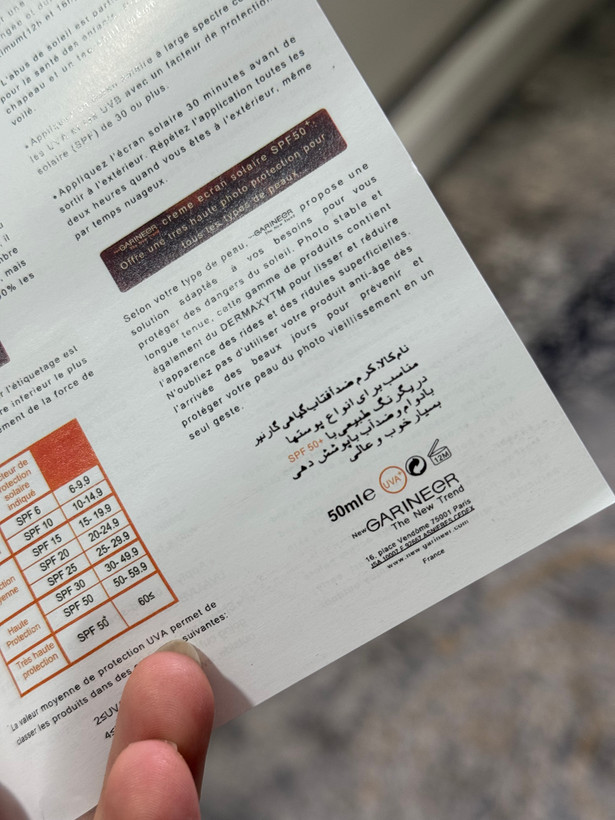 L'abus de soleil est
pour la santé des
chapeau et un
voile.
à large spectre
les UVB avec un facteur de protection
solaire (SPF) de 30 ou plus.
•Appliquez l'écran solaire 30 minutes avant de
sortir à l'extérieur. Répétez l'application toutes les
deux heures quand vous êtes à l'extérieur, même
par temps nuageux.
GARINEER crème ecran solaire SPF50+.
The New Trend
Offre une très haute photo protection pour
tous les types de peaux...
Selon votre type de peau, GARINEER propose une
solution adaptée à vos besoins pour vous
protéger des dangers du soleil. Photo stable et
longue tenue, cette gamme de produits contient
également du DERMAXYTM pour lisser et réduire
l'apparence des rides et des ridules superficielles.
N'oubliez pas d'utiliser votre produit anti-âge dès
l'arrivée des beaux jours pour prévenir et
protéger votre peau du photo vieillissement en un
seul geste.
نام کالا: کرم ضد آفتاب گیاهی گارنیر
مناسب برای انواع پوستها
در یگر نگ طبیعی با SPF 50+
بادوام و ضد آب با پوشش دهی
بسیار خوب و عالی
50ml e UVA 12M
New GARINEER
The New Trend
16, place Vendôme 75001 Paris
www.new garineer.com
France
l'étiquetage est
re inferieur le plus
ement de la force de
protection
solaire
indiqué
SPF 6 6-9.9
SPF 10 10-14.9
SPF 15 15- 19.9
SPF 20 20-24.9
SPF 25 25- 29.9
SPF 30 30- 49.9
SPF 50 50- 59.9
Haute
Protection
Très haute
protection
SPF 50+ 60≤
La valeur moyenne de protection UVA permet de
classer les produits dans des suivantes:
2≤UV
4≤